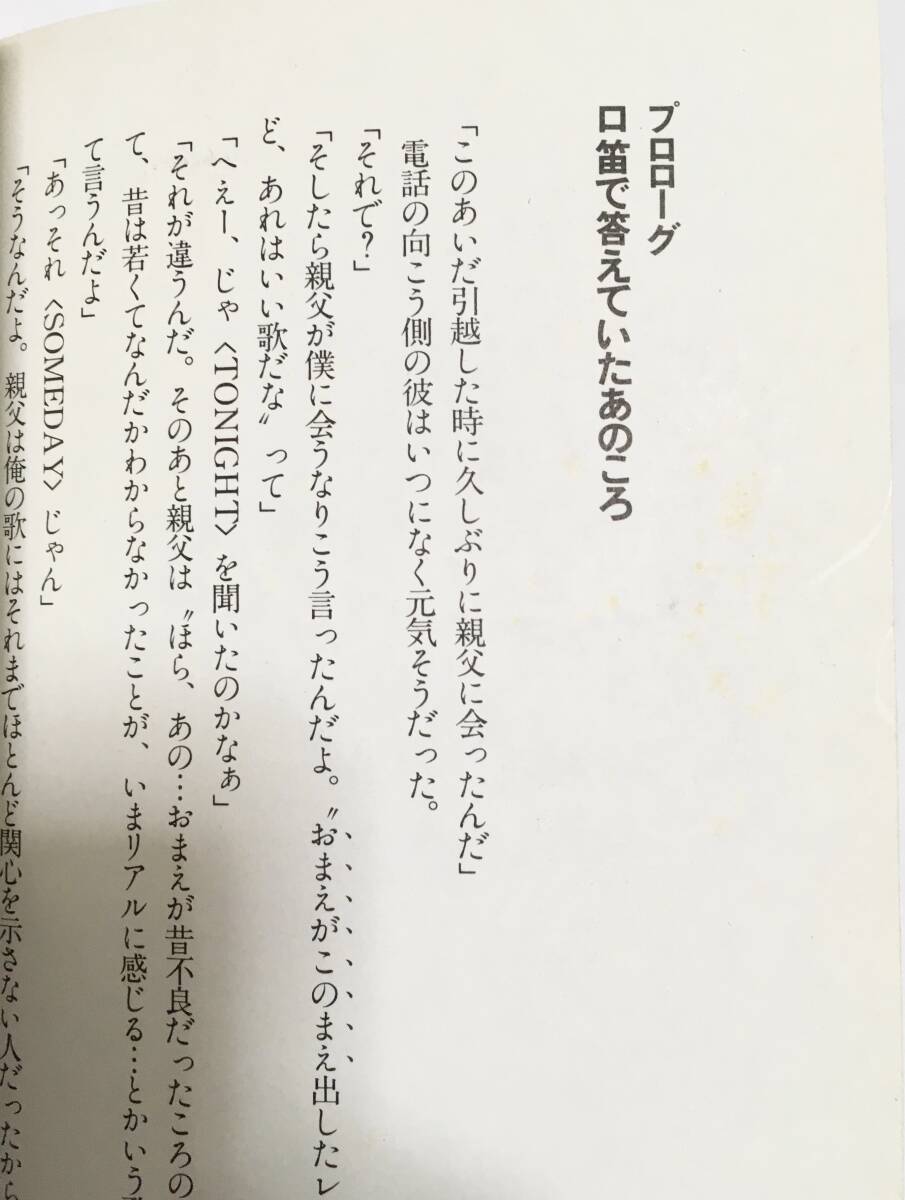 プロローグ
口笛で答えていたあのころ
「このあいだ引越した時に久しぶりに親父に会ったんだ」
電話の向こう側の彼はいつになく元気そうだった。
「それで？」
「そしたら親父が僕に会うなりこう言ったんだよ。〝おまえがこのまえ出したレ
ど、あれはいい歌だな〟って」
「へぇー、じゃ〈TONIGHT〉を聞いたのかなぁ」
「それが違うんだ。そのあと親父は〝ほら、あの…おまえが昔不良だったころの
て、昔は若くてなんだかわからなかったことが、いまリアルに感じる…とかいう
て言うんだよ」
「あっそれ〈SOMEDAY〉じゃん」
「そうなんだよ。親父は俺の歌にはそれまでほとんど関心を示さない人だったから